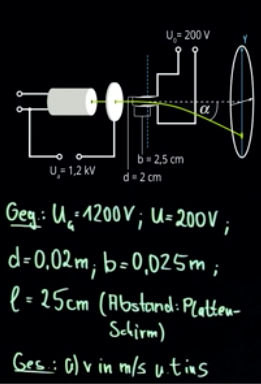 U₀= 200 V
Y
α
b = 2,5 cm
Uₐ= 1,2 kV
d = 2 cm
Geg.: Uₐ=1200V; U=200V;
d=0,02m; b=0,025m;
l = 25cm (Abstand: Platten-
Schirm)
Ges: a) v in m/s u. t in s